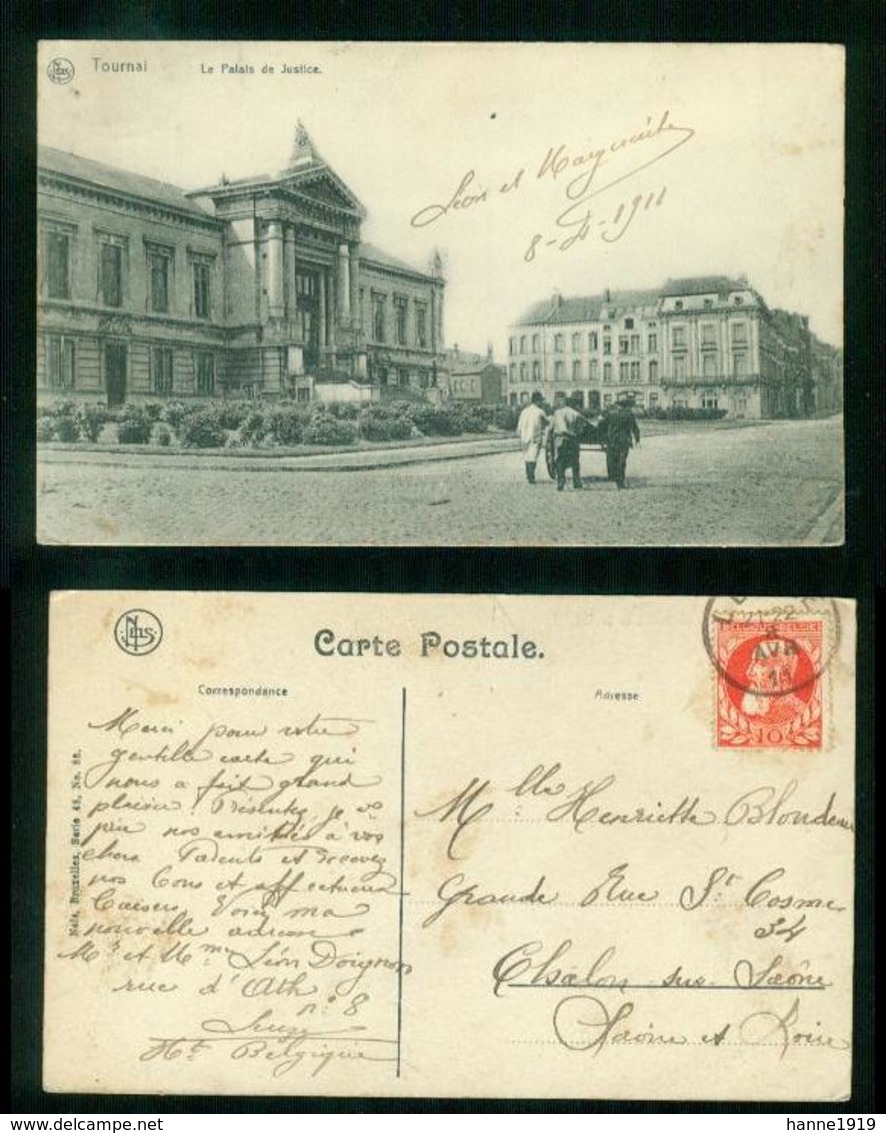 Tournai Le Palais de Justice.
Léon et Marguerite
8-4-1911
NELS
Carte Postale.
Correspondance
Adresse
BELGIQUE-BELGIE
8
AVR
11
10
Nels, Bruxelles, Serie 48, No. 82.
Merci pour votre
gentille carte qui
nous a fait grand
plaisir. Présentez, je vs
prie nos amitiés à vos
chers Parents et recevez
nos bons et affectueux
baisers. Voici ma
nouvelle adresse
Mr et Mme Léon Doignon
rue d'Ath
n° 8
Leuze
Ht Belgique
Mlle Henriette Blondeau
Grande Rue St Cosme
34
Chalon sur Saône
Saône et Loire
hanne1919